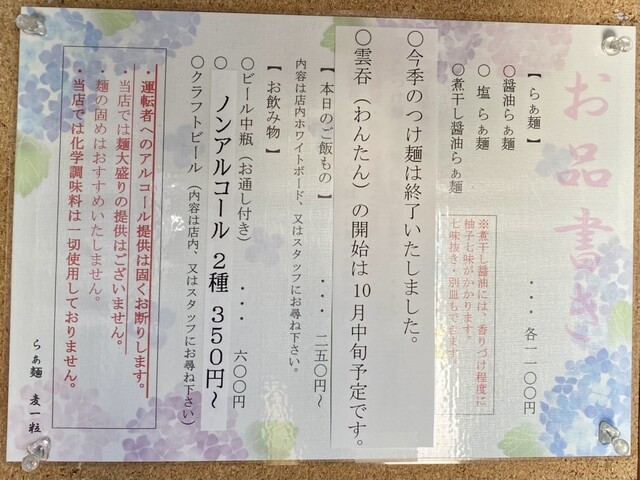 お品書き
【らぁ麺】
○醤油らぁ麺
○塩らぁ麺
○煮干し醤油らぁ麺
・・・各一一〇〇円
※煮干し醤油には、香りづけ程度に
柚子七味がかかります。
七味抜き・別皿もできます。
○今季のつけ麺は終了いたしました。
○雲吞（わんたん）の開始は10月中旬予定です。
【本日のご飯もの】・・・二五〇円～
内容は店内ホワイトボード、又はスタッフにお尋ね下さい。
【お飲み物】
○ビール中瓶（お通し付き）・・・六〇〇円
○ノンアルコール 2種 350円～
○クラフトビール（内容は店内、又はスタッフにお尋ね下さい）
・運転者へのアルコール提供は固くお断りします。
・当店では麺大盛りの提供はございません。
・麺の固めはおすすめいたしません。
・当店では化学調味料は一切使用しておりません。
らぁ麺 麦一粒